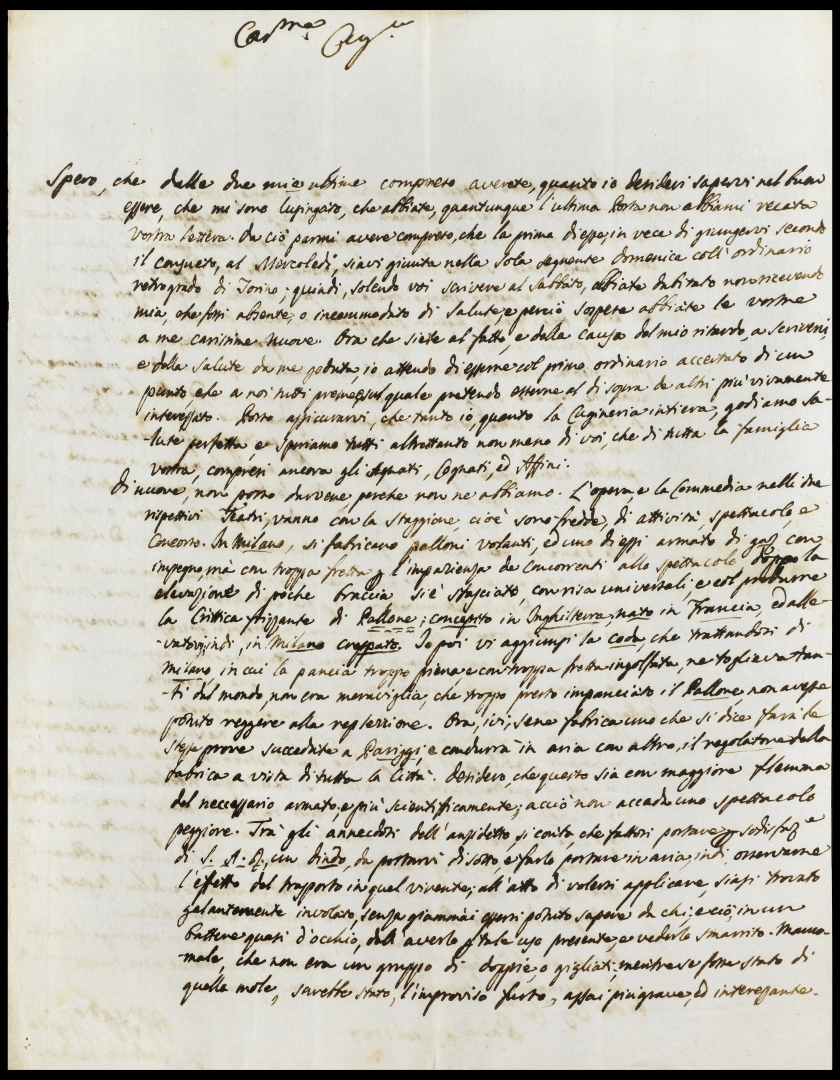 Car.ma Cug.a
Spero, che dalle due mie ultime compreso averete, quanto io desideri sapervi nel buon
essere, che mi sono lusingato, che abbiate, quantunque l'ultima Posta non abbiami recata
vostra lettera. Da ciò parmi avere compreso, che la prima d'esse, in vece di giungervi secondo
il consueto, al Mercoledì, siavi giunta nella sola seguente domenica coll'ordinario
retrogrado di Torino; quindi, solendo voi scrivere al sabbato, abbiate dubitato non ricevendo
mia, che fossi absente, o incommodato di salute, e perciò sospese abbiate le vostre
a me carissime nuove. Ora che siete al fatto, e della causa del mio ritardo, a scrivervi,
e della salute da me goduta, io attendo di esserne col primo ordinario accertato di un
punto, che a noi tutti preme, sul quale pretendo esserne al di sopra de altri più vivamente
interessato. Posso assicurarvi, che tanto io, quanto la Cugineria intiera, godiamo sa-
lute perfetta, e speriamo tutti altrettanto non meno di voi, che di tutta la famiglia
vostra, compresi ancora gli Agnati, Cognati, ed Affini.
Di nuove, non posso darvene perche non ne abbiamo. L'opera, e la Commedia nelli due
rispettivi Teatri, vanno con la staggione, cioè sono fredde, di attività, spettacolo, e
Concorso. In Milano, si fabricano palloni volanti, ed uno di essi armato di gaz con
impegno, mà con troppa fretta p l'impazienza de Concorrenti allo spettacolo doppo la
elevazione di poche braccia si è sfasciato, con risa universali, e col produrre
la Critica frizzante di Pallone; concepito in Inghilterra, nato in Francia, ed alle-
vatosi, indi, in Milano creppato. Io poi vi aggiunsi la coda, che trattandosi di
Milano, in cui la pancia troppo piena, e con troppa fretta ingolfata, ne toglieva tan-
ti dal mondo, non era meraviglia, che troppo presto impanciato il Pallone non avesse
potuto reggere alla replezione. Ora, ivi, se ne fabrica uno che si dice farà le
stesse prove succedute a Pariggi, e condurrà in aria con altro, il regolatore della
fabrica a vista di tutta la Città. Desidero, che questo sia con maggiore flemma
del neccessario armato, e più scientificamente; acciò non accada uno spettacolo
peggiore. Trà gli annecdoti dell'ansidetto, si conta, che fattosi portare p sodisfaz.e
di S. A. R. un dindo, da portarvi di sotto, e farlo portare in aria, indi osservarne
l'effetto del trasporto in quel vivente; all'atto di volersi applicare, siasi trovato
galantemente involato, senza giammai essersi potuto sapere da chi; e ciò, in un
battere quasi d'occhio, dall'averlo p tale uso presente, e vederlo smarrito. Manco
male, che non era un gruppo di doppie, o gigliati; mentre se fosse stato di
quella mole, sarebbe stato, l'improviso furto, assai più grave, ed interessante.